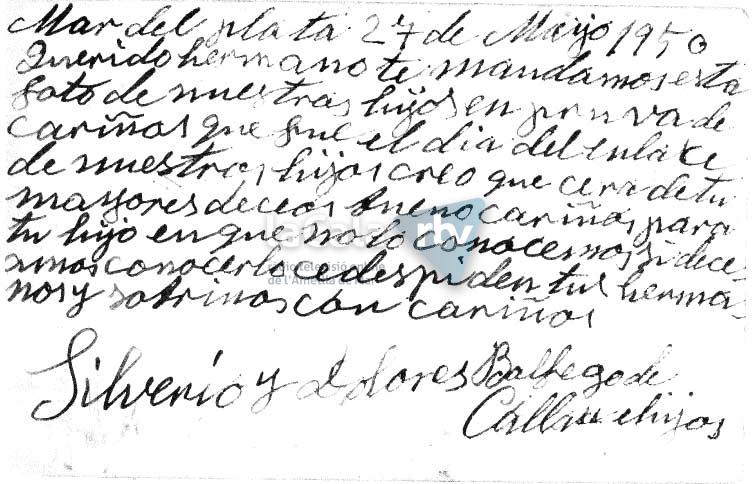 Mar del plata 27 de Mayo 1950
Querido hermano te mandamos esta
foto de nuestras hijos en prueva de
cariños que fue el dia del enlace
de nuestros hijos creo que cera de tu
mayores deceos bueno cariños para
tu hijo en que no lo conocemos si dece
amos conocerlo ce despiden tus herma
nos y sobrinos con cariños
Silverio y dolores Balfego de
e hijos
laCala rtv
de l'Ametlla de Mar